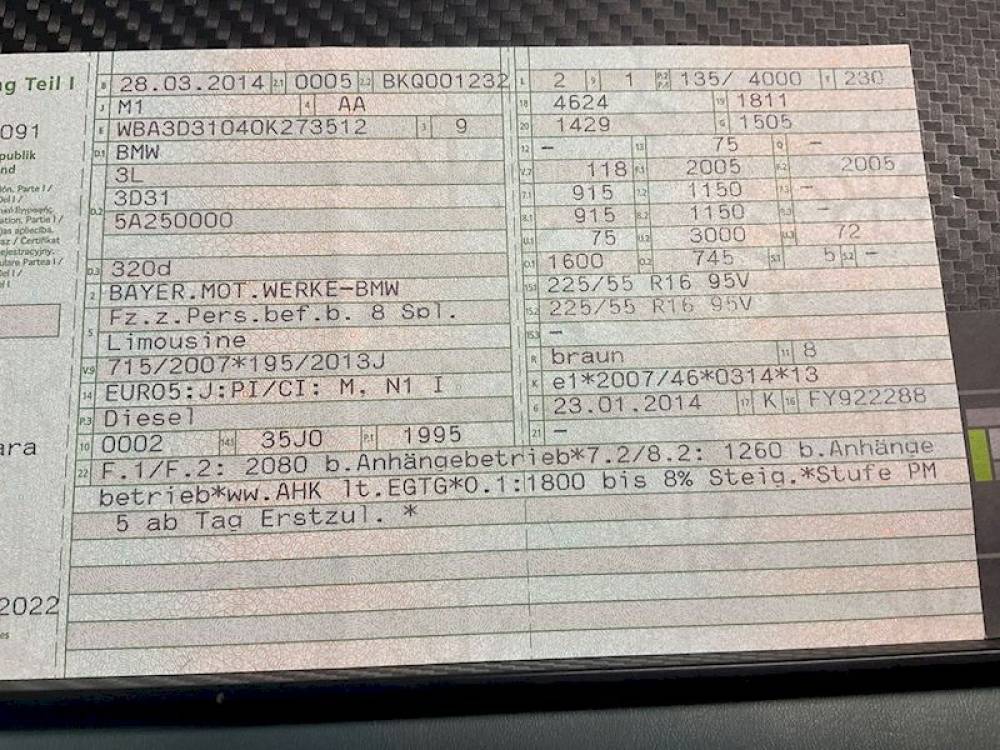 ng Teil I
091
publik
nd
ara
2022
B 28.03.2014 2.1 0005 2.2 BKQ001232
J M1 4 AA
E WBA3D31040K273512 3 9
D.1 BMW
3L
3D31
D.2 5A250000
D.3 320d
2 BAYER.MOT.WERKE-BMW
Fz.z.Pers.bef.b. 8 Spl.
5 Limousine
V.9 715/2007*195/2013J
14 EURO5:J:PI/CI: M, N1 I
P.3 Diesel
10 0002 14.1 35J0 P.1 1995
L 2 9 1 P.2 P.4 135/ 4000 T 230
18 4624 19 1811
20 1429 G 1505
12 – 13 75 Q –
V.7 118 F.1 2005 F.2 2005
7.1 915 7.2 1150 7.3 –
8.1 915 8.2 1150 8.3 –
U.1 75 U.2 3000 U.3 72
O.1 1600 O.2 745 S.1 5 S.2 –
15.1 225/55 R16 95V
15.2 225/55 R16 95V
15.3 –
R braun 11 8
K e1*2007/46*0314*13
6 23.01.2014 17 K 16 FY922288
21 –
22 F.1/F.2: 2080 b.Anhängebetrieb*7.2/8.2: 1260 b.Anhänge
betrieb*ww.AHK lt.EGTG*O.1:1800 bis 8% Steig.*Stufe PM
5 ab Tag Erstzul. *